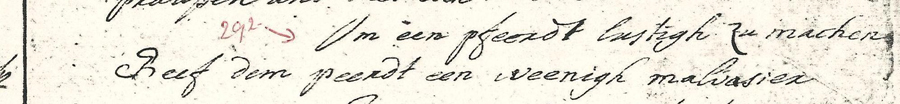 292 →
Um een pfeerdt lustigh zu machen
Geef dem peerdt een weenigh malvasier